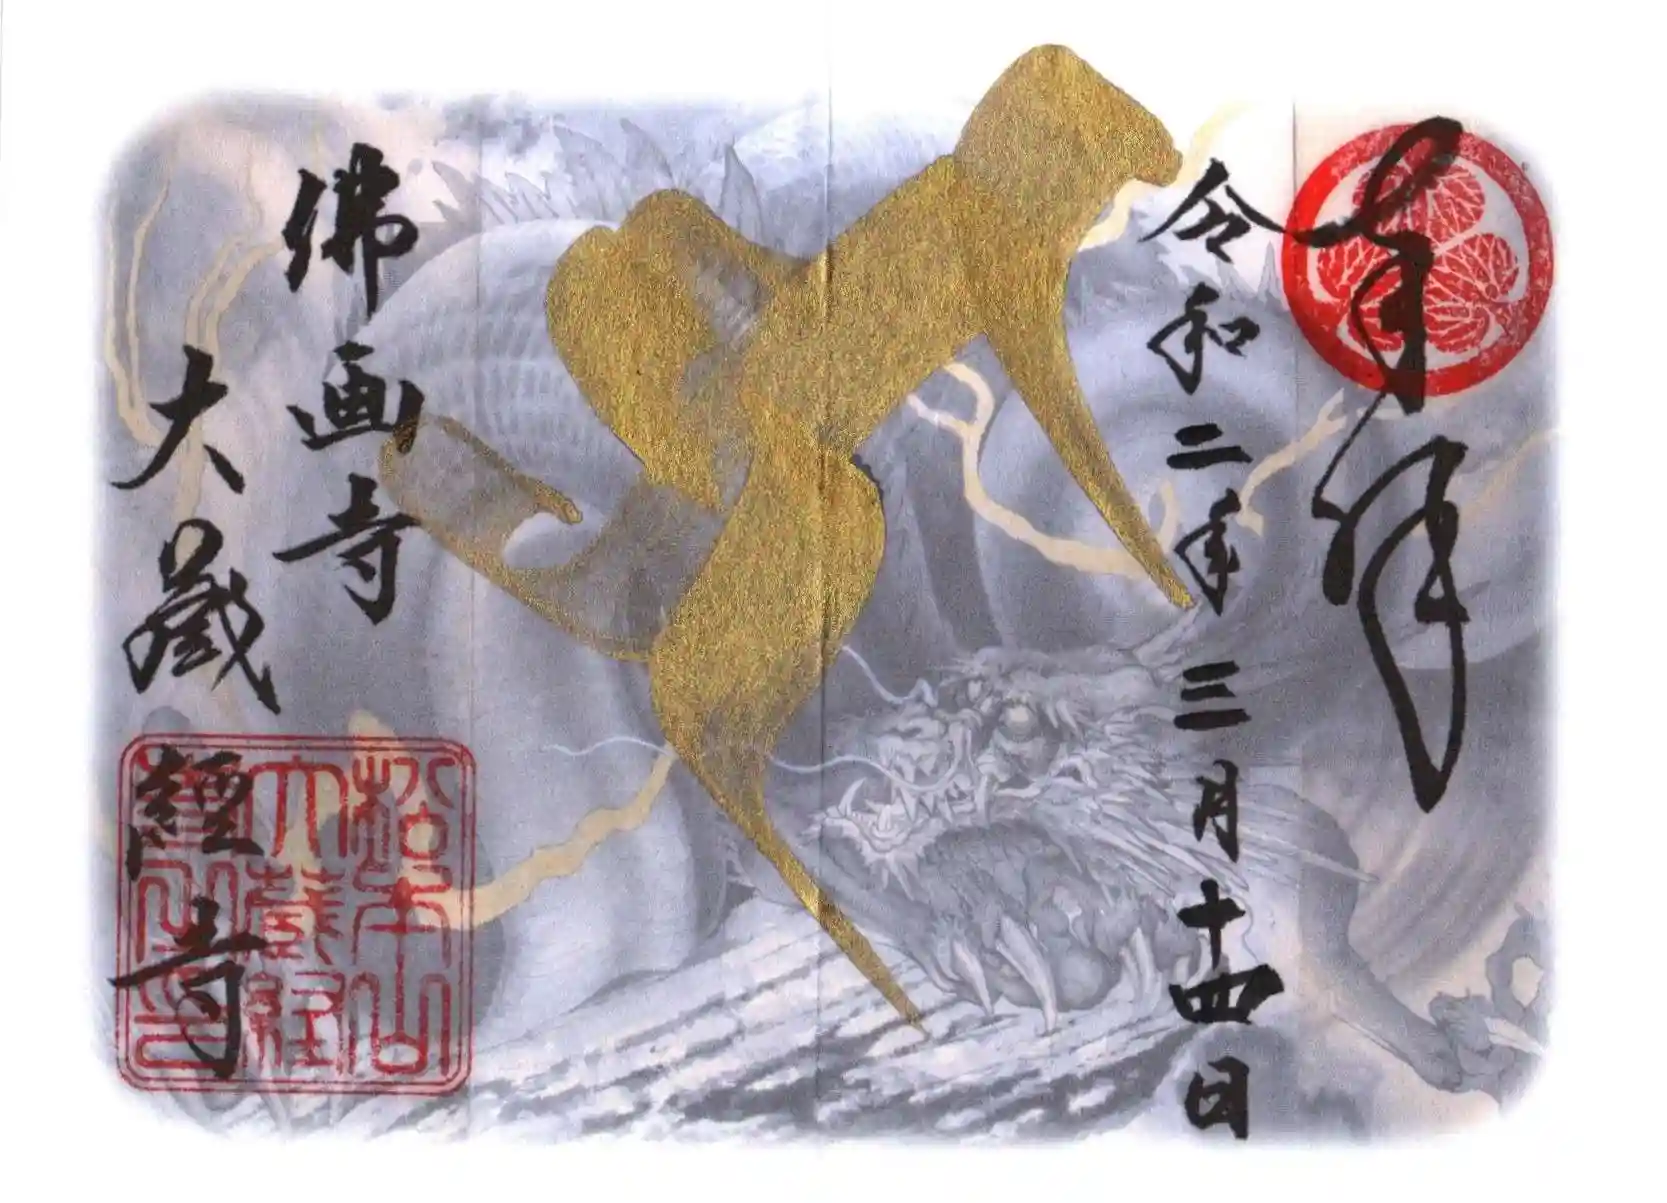 奉拝
令和二年三月十四日
佛画寺
大蔵經寺
松本山
大蔵経